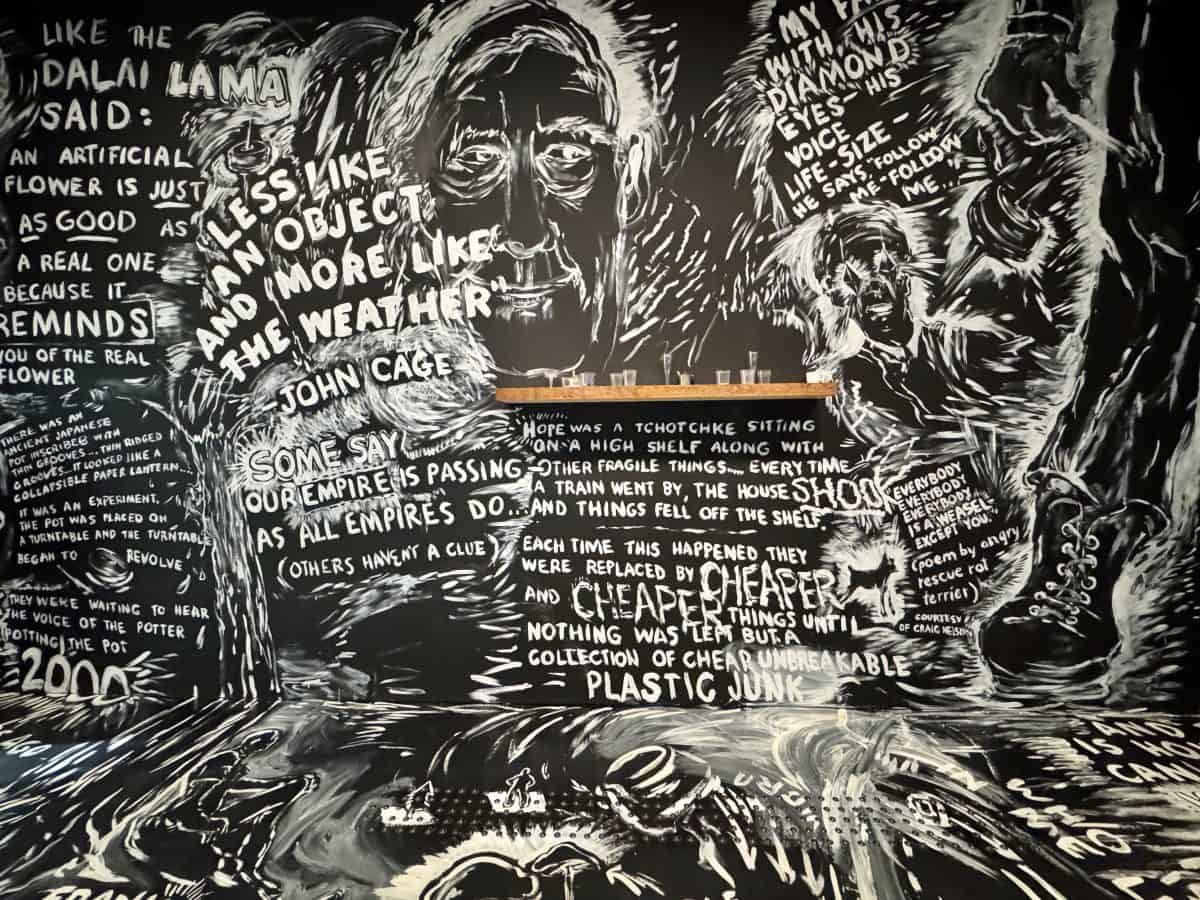 LIKE THE
DALAI LAMA
SAID:
AN ARTIFICIAL
FLOWER IS JUST
AS GOOD AS
A REAL ONE
BECAUSE IT
REMINDS
YOU OF THE REAL
FLOWER
THERE WAS AN
ANCIENT JAPANESE
POT INSCRIBED WITH
THIN GROOVES... THIN RIDGED
GROOVES... IT LOOKED LIKE A
COLLAPSIBLE PAPER LANTERN...
IT WAS AN EXPERIMENT.
THE POT WAS PLACED ON
A TURNTABLE AND THE TURNTABLE
BEGAN TO REVOLVE
THEY WERE WAITING TO HEAR
THE VOICE OF THE POTTER
POTTING THE POT
2000
"LESS LIKE
AN OBJECT
AND MORE LIKE
THE WEATHER"
-JOHN CAGE
SOME SAY
OUR EMPIRE IS PASSING
AS ALL EMPIRES DO...
(OTHERS HAVEN'T A CLUE)
MY
WITH HIS
DIAMOND
EYES- HIS
VOICE
LIFE-SIZE-
HE SAYS, "FOLLOW
ME-FOLLOW
ME..."
HOPE WAS A TCHOTCHKE SITTING
ON A HIGH SHELF ALONG WITH
OTHER FRAGILE THINGS... EVERY TIME
A TRAIN WENT BY, THE HOUSE SHOOK
AND THINGS FELL OFF THE SHELF.
EACH TIME THIS HAPPENED THEY
WERE REPLACED BY CHEAPER
AND CHEAPER THINGS UNTIL
NOTHING WAS LEFT BUT A
COLLECTION OF CHEAP UNBREAKABLE
PLASTIC JUNK
EVERYBODY
EVERYBODY
EVERYBODY
IS A WEASEL.
EXCEPT YOU.
(poem by angry
rescue rat
terrier)
COURTESY
OF CRAIG NELSON
IS